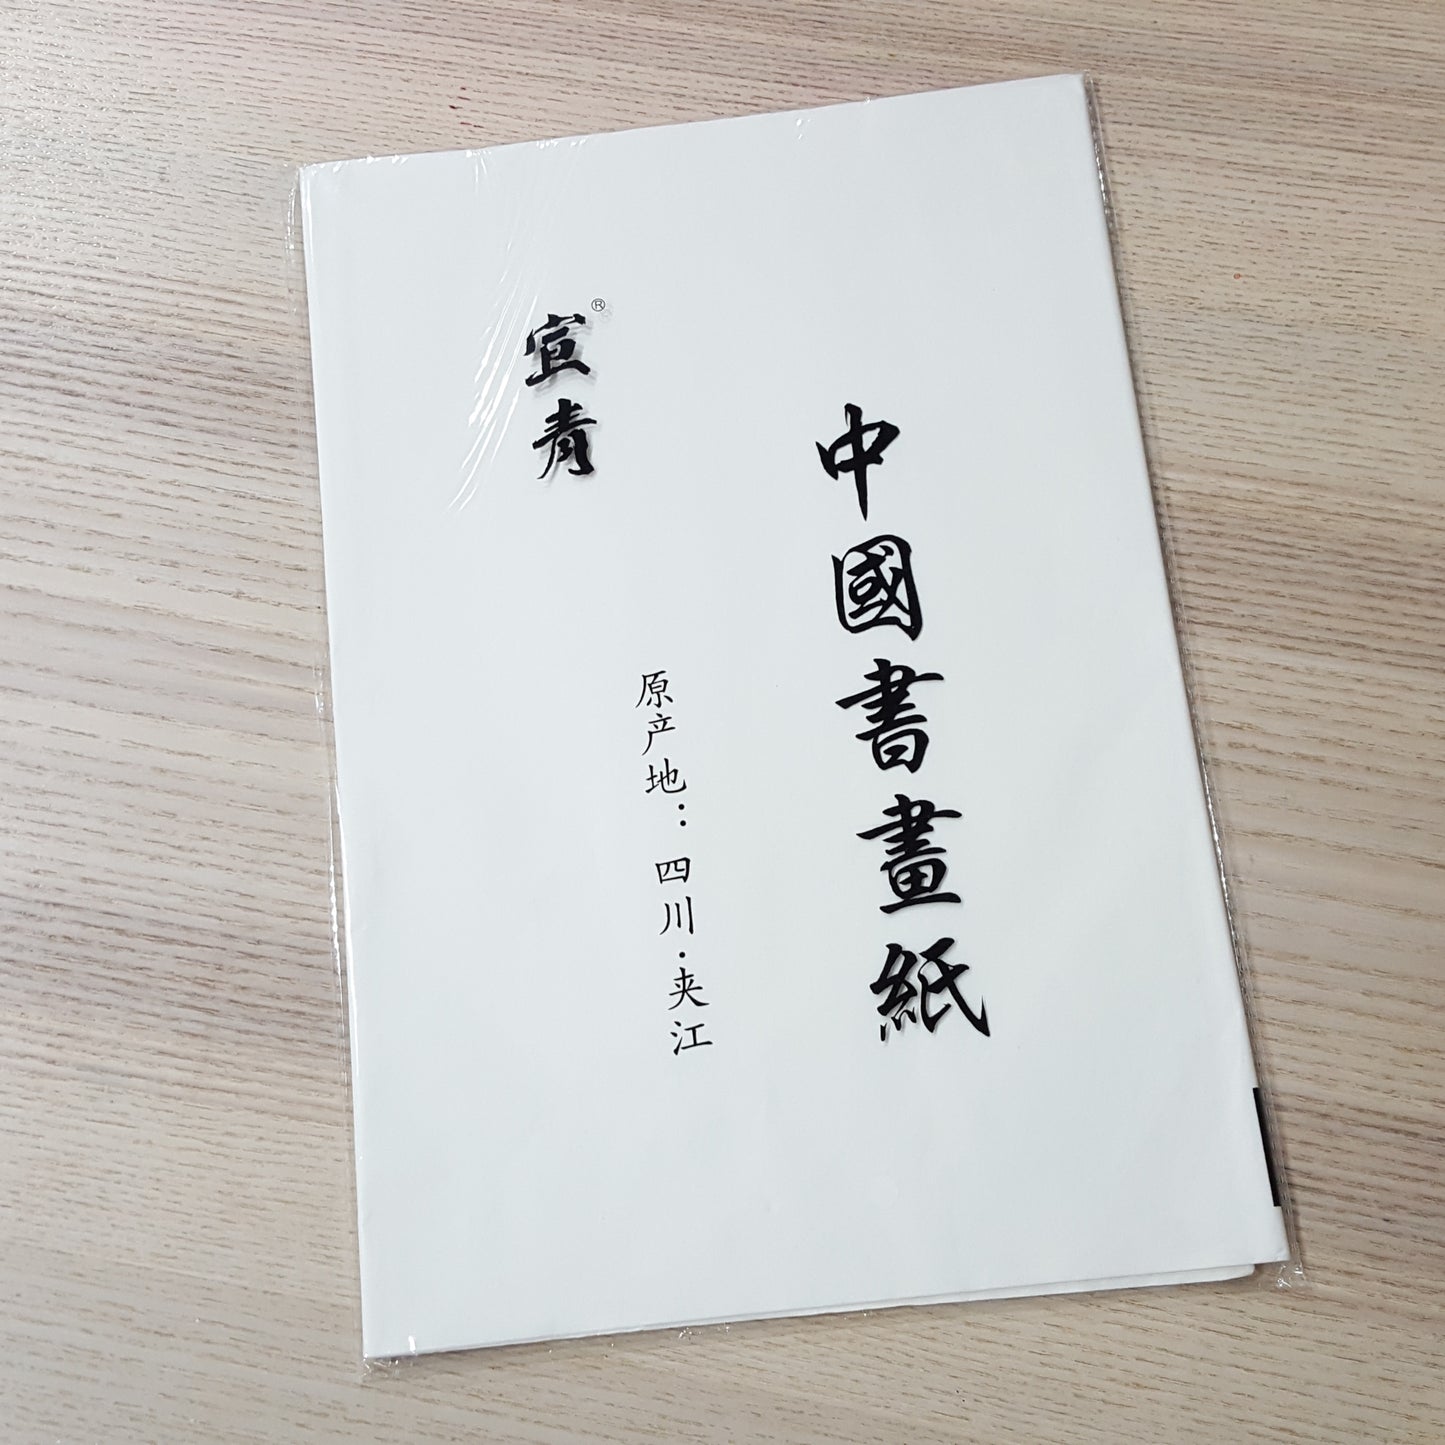 中國書畫紙
原产地：四川·夹江
宣青®